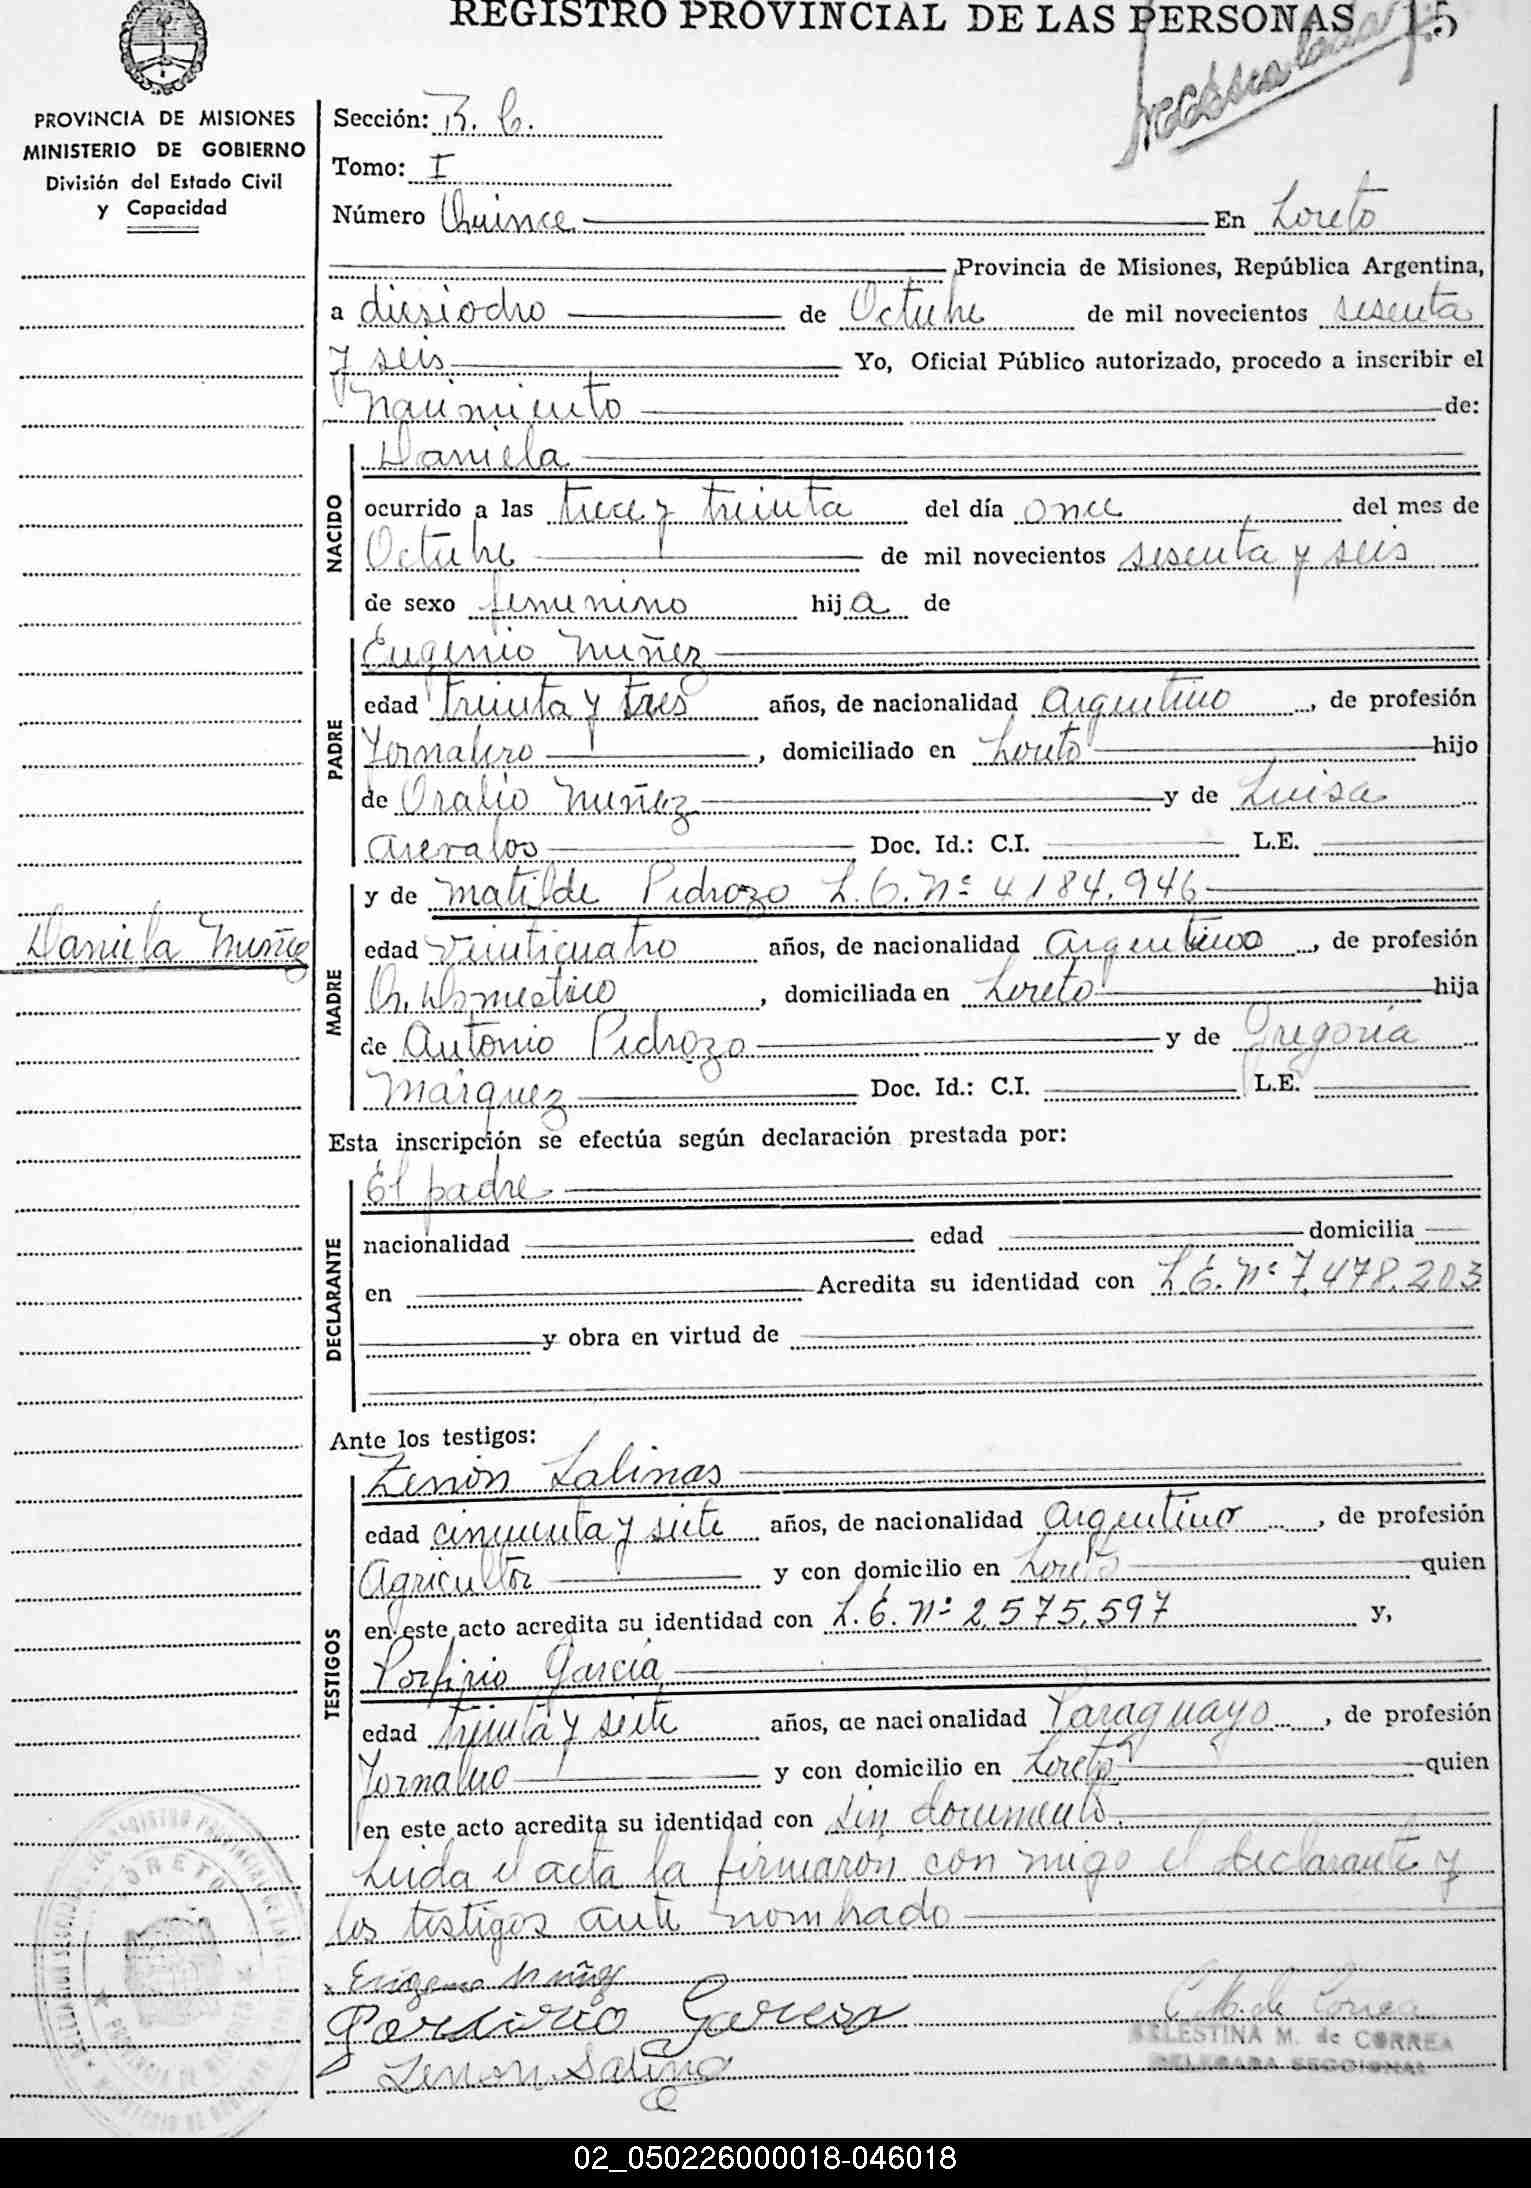 REGISTRO PROVINCIAL DE LAS PERSONAS 15
PROVINCIA DE MISIONES
MINISTERIO DE GOBIERNO
División del Estado Civil
y Capacidad
Daniela Nuñez
Sección: R. C.
Tomo: I
Número Quince En Loreto
Provincia de Misiones, República Argentina,
a diesiocho de Octubre de mil novecientos sesenta
y seis Yo, Oficial Público autorizado, procedo a inscribir el
Nacimiento de:
NACIDO
Daniela
ocurrido a las trece y treinta del día once del mes de
Octubre de mil novecientos sesenta y seis
de sexo femenino hija de
PADRE
Eugenio Nuñez
edad treinta y tres años, de nacionalidad Argentino, de profesión
Jornalero, domiciliado en Loreto hijo
de Oralio Nuñez y de Luisa
Arevalos Doc. Id.: C.I. L.E.
y de Matilde Pedrozo L.C. Nº 4184.946
MADRE
edad Veinticuatro años, de nacionalidad Argentina, de profesión
Q. Domestico, domiciliada en Loreto hija
de Antonio Pedrozo y de Gregoria
Márquez Doc. Id.: C.I. L.E.
Esta inscripción se efectúa según declaración prestada por:
DECLARANTE
El padre
nacionalidad edad domicilia
en Acredita su identidad con L.E. Nº 7,478.203
y obra en virtud de
Ante los testigos:
TESTIGOS
Zenón Salinas
edad cincuenta y siete años, de nacionalidad Argentino, de profesión
Agricultor y con domicilio en Loreto quien
en este acto acredita su identidad con L.E. Nº 2,575,597 y,
Porfirio García
edad treinta y siete años, de nacionalidad Paraguayo, de profesión
Jornalero y con domicilio en Loreto quien
en este acto acredita su identidad con sin documento.
Leida el acta la firmaron con migo el declarante y
los testigos ante nombrado
Eugenio Nuñez
Porfirio Garcia
Zenon Salina
C.M. de Correa
CELESTINA M. de CORREA
DELEGADA SECCIONAL
LORETO
02_050226000018-046018